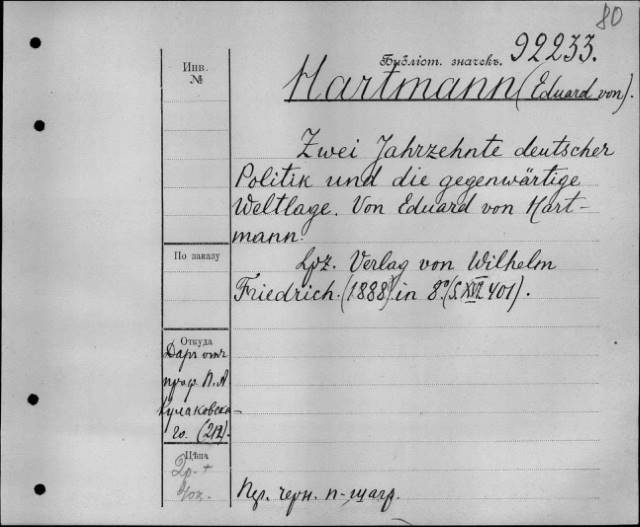 80
Библіот. значекъ. 92233.
Инв.
№
Hartmann (Eduard von).
Zwei Jahrzehnte deutscher
Politik und die gegenwärtige
Weltlage. Von Eduard von Hart-
mann.
По заказу
Lpz. Verlag von Wilhelm
Friedrich. (1888) in 8º. (S. XVI 401).
Откуда
Даръ отъ
проф. П. А
Кулаковска-
го. (212).
Цѣна
2р. +
40к.
Пдл. черн. п-шагр.